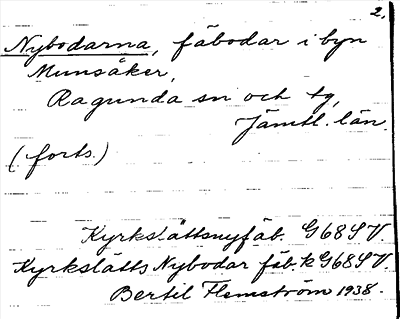 2.
Nybodarna, fäbodar i byn
Munsåker,
Ragunda sn och tg,
Jämtl. län.
(forts.)
Kyrkslättsnyfäb. G68SV.
Kyrkslätts Nybodar fäb. k G68SV.
Bertil Flemström 1938.